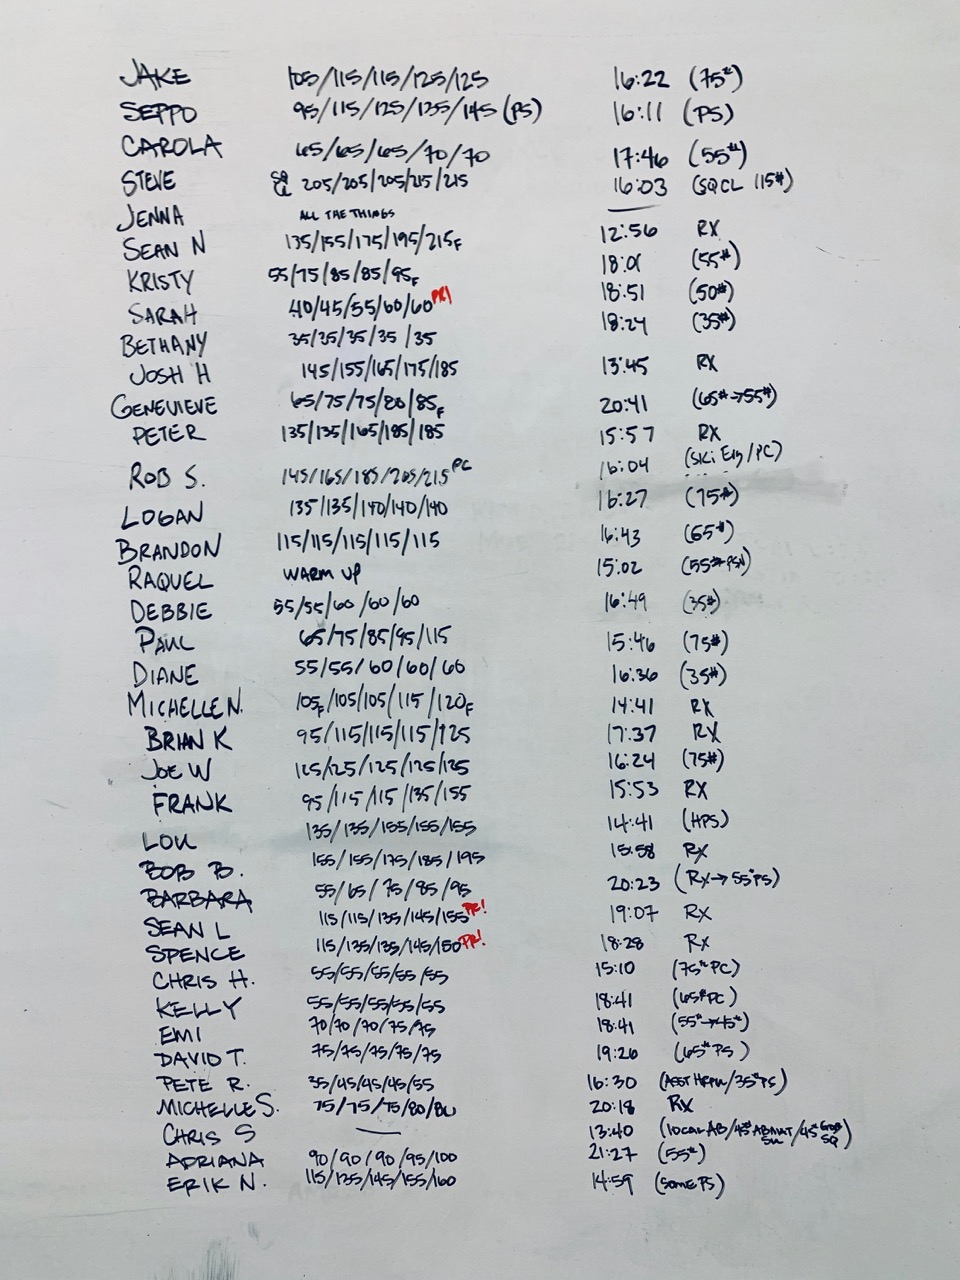 JAKE 105/115/115/125/125 16:22 (75#)
SEPPO 95/115/125/135/145 (PS) 16:11 (PS)
CAROLA 65/65/65/70/70 17:46 (55#)
STEVE SQ CL 205/205/205/215/215 16:03 (SQCL 115#)
JENNA ALL THE THINGS —
SEAN N 135/155/175/195/215F 12:56 RX
KRISTY 55/75/85/85/95F 18:01 (55#)
SARAH 40/45/55/60/60 PR! 18:51 (50#)
BETHANY 35/35/35/35/35 18:24 (35#)
JOSH H 145/155/165/175/185 13:45 RX
GENEVIEVE 65/75/75/80/85F 20:41 (65#→55#)
PETER 135/135/165/185/185 15:57 RX
ROB S. 145/165/185/205/215 PC 16:04 (SKI Erg/PC)
LOGAN 135/135/140/140/140 16:27 (75#)
BRANDON 115/115/115/115/115 16:43 (65#)
RAQUEL WARM UP 15:02 (55# PSN)
DEBBIE 55/55/60/60/60 16:49 (35#)
PAUL 65/75/85/95/115 15:46 (75#)
DIANE 55/55/60/60/60 16:36 (35#)
MICHELLE N. 105F/105/105/115/120F 14:41 RX
BRIAN K 95/115/115/115/125 17:37 RX
JOE W 125/125/125/125/125 16:24 (75#)
FRANK 95/115/115/135/155 15:53 RX
LOU 135/135/155/155/155 14:41 (HPS)
BOB B. 155/155/175/185/195 15:58 RX
BARBARA 55/65/75/85/95 20:23 (RX→55# PS)
SEAN L 115/115/135/145/155 PR! 19:07 RX
SPENCE 115/135/135/145/150 PR! 18:28 RX
CHRIS H. 55/55/55/55/55 15:10 (75# PC)
KELLY 55/55/55/55/55 18:41 (65# PC)
EMI 70/70/70/75/75 18:41 (55#→45#)
DAVID T. 75/75/75/75/75 19:26 (65# PS)
PETE R. 35/45/45/45/55 16:30 (ASST HSPU/35# PS)
MICHELLE S. 75/75/75/80/80 20:18 RX
CHRIS S — 13:40 (10CAL AB/45# /45# SQ)
ADRIANA 90/90/90/95/100 21:27 (55#)
ERIK N. 115/135/145/155/160 14:59 (SOME PS)